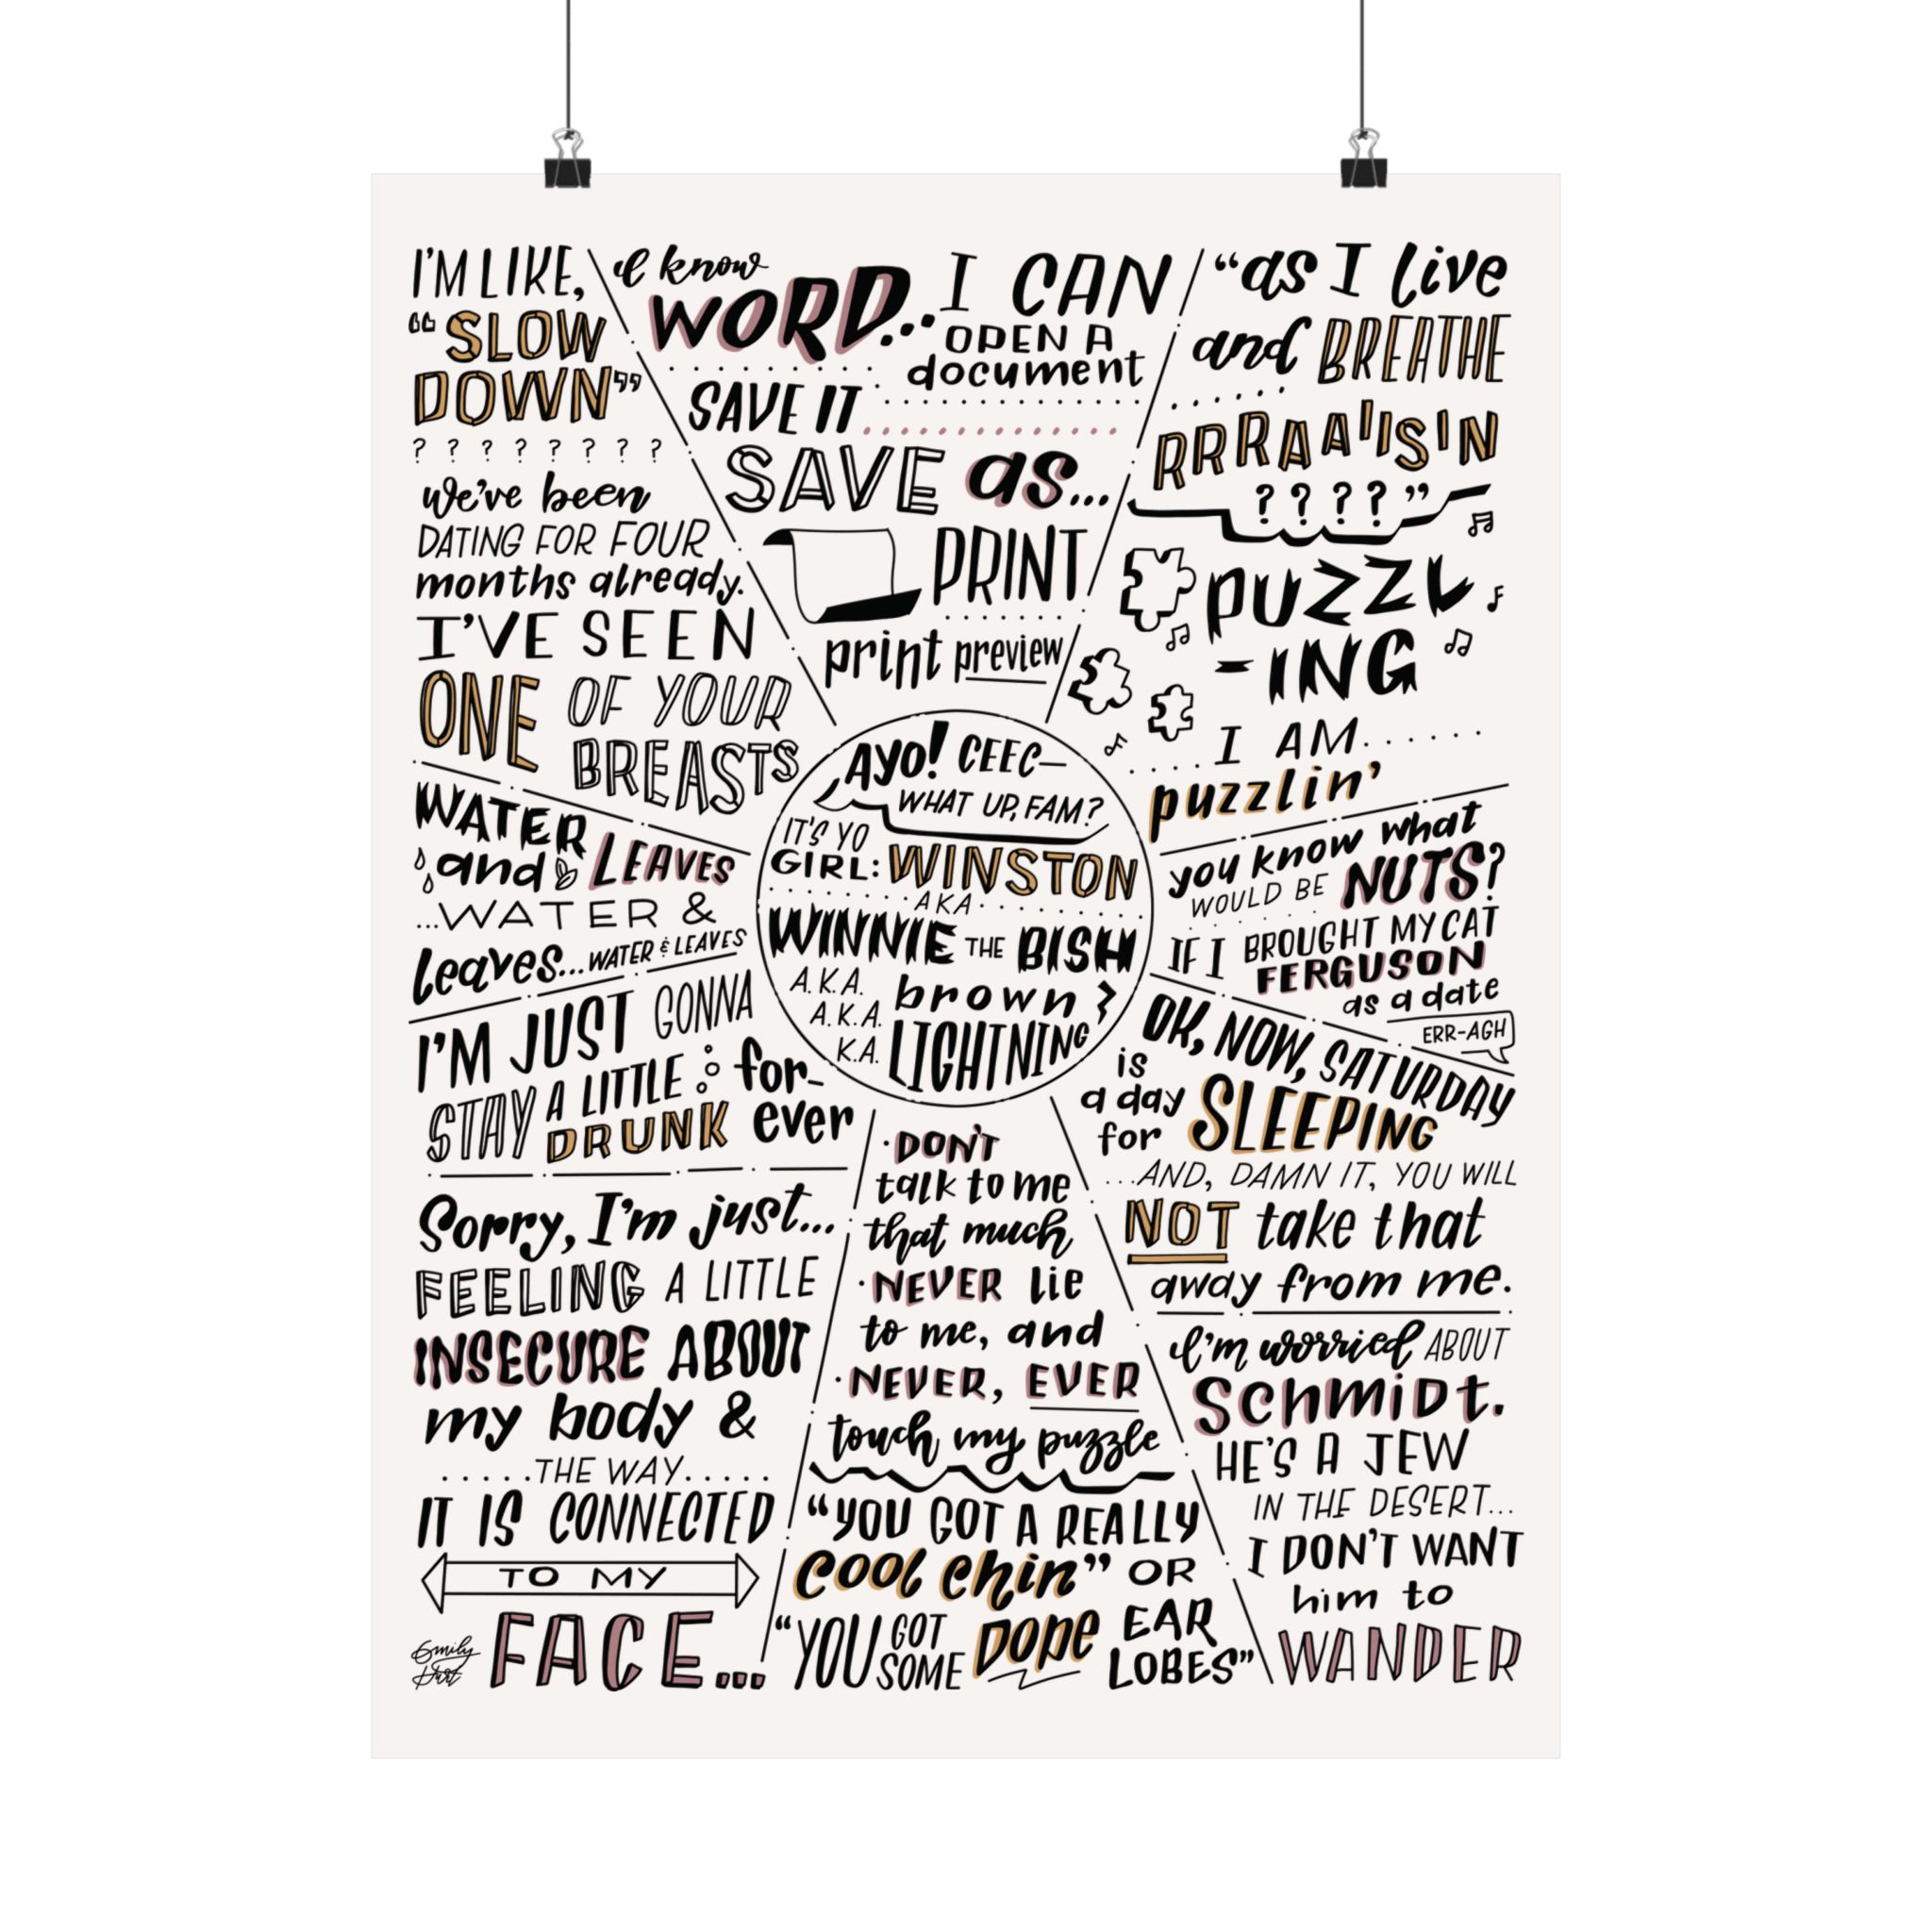 I'M LIKE,
"SLOW
DOWN"
? ? ? ? ? ? ? ?
we've been
DATING FOR FOUR
months already.
I'VE SEEN
ONE OF YOUR
BREASTS
I know
WORD... I CAN
OPEN A
document
SAVE IT
SAVE as...
PRINT
print preview
"as I live
and BREATHE
RRRAAIISIN
? ? ? ?"
PUZZL
-ING
I AM......
puzzlin'
WATER
and LEAVES
...WATER &
leaves...WATER & LEAVES
AYO! CEEC—
WHAT UP, FAM?
IT'S YO
GIRL: WINSTON
AKA
WINNIE THE BISH
A.K.A. brown
A.K.A.
K.A. LIGHTNING
you know what
WOULD BE NUTS?
IF I BROUGHT MY CAT
FERGUSON
as a date
ERR-AGH
I'M JUST GONNA
STAY A LITTLE for-
DRUNK ever
OK, NOW, SATURDAY
is
a day
for SLEEPING
...AND, DAMN IT, YOU WILL
NOT take that
away from me.
Sorry, I'm just...
FEELING A LITTLE
INSECURE ABOUT
my body &
.....THE WAY.....
IT IS CONNECTED
TO MY
FACE...
Emily
·DON'T
talk to me
that much
·NEVER lie
to me, and
·NEVER, EVER
touch my puzzle
"YOU GOT A REALLY
cool chin" OR
"YOU GOT
SOME DOPE EAR
LOBES"
I'm worried ABOUT
SCHMIDT.
HE'S A JEW
IN THE DESERT...
I DON'T WANT
him to
WANDER